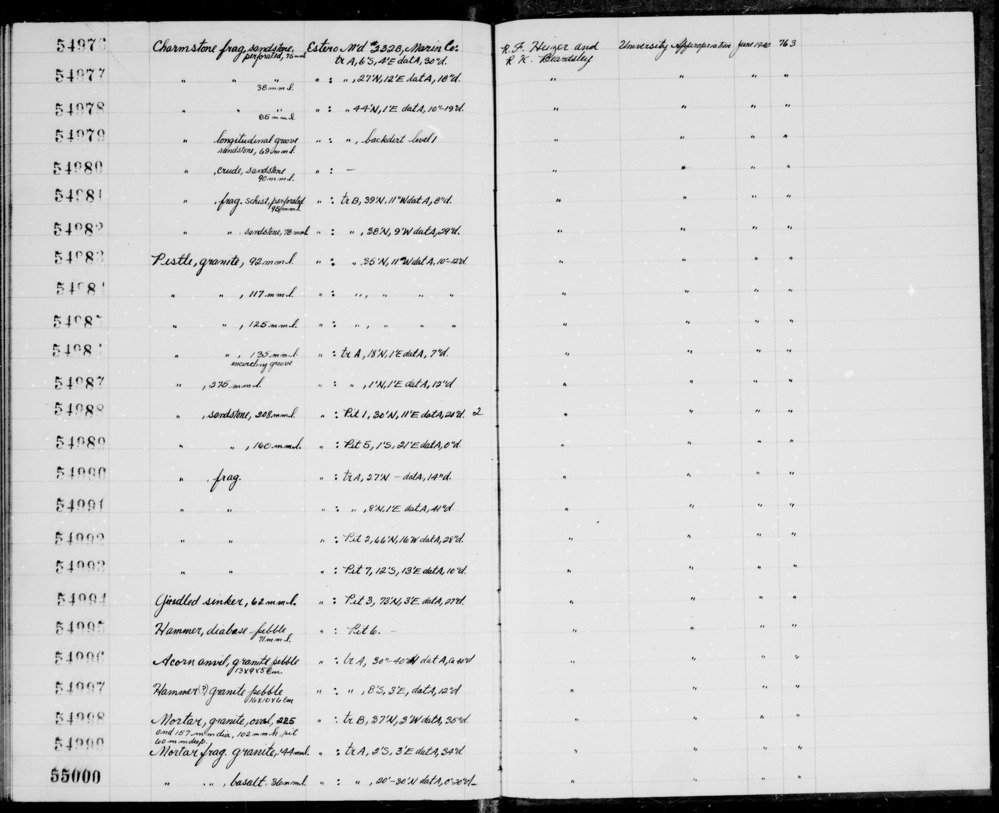 54976 Charmstone frag, sandstone, perforated, 75 mm l Estero M'd #3328, Marin Co: tr A, 6'S, 4'E dat A, 30"d. R. F. Heizer and R. K. Beardsley University Appropriation June 1940 763
54977 " " " 38 mm l. " : " , 27'N, 12'E dat A, 18"d. " " " "
54978 " " " 65 mm l " : " 44'N, 1'E dat A, 10"-19"d. " " " "
54979 " longitudinal groove sandstone, 69 mm l. " : " , backdirt level 1 " " " "
54980 " , crude, sandstone 90 mm l. " : — " " " "
54981 " , frag. schist, perforated mm l. " : tr B, 39'N, 11'W dat A, 8"d. " " " "
54982 " " . sandstone, 78 mm l " : " , 38'N, 9'W dat A, 29"d. " " " "
54983 Pestle, granite, 92 mm l " : " , 35'N, 11'W dat A, 10"-12"d " " " "
54984 " " , 117 mm l. " : " , " " " " " " "
54985 " " , 125 mm l. " : " , " " " " " " "
54986 " " , 135 mm l. encircling groove " : tr A, 18'N, 1'E dat A, 7"d. " " " "
54987 " , 275 mm l. " : " , 1'N, 1'E dat A, 12"d " " " "
54988 " , sandstone, 208 mm l " : Pit 1, 30'N, 11'E dat A, 20"d. 2 " " " "
54989 " " , 160 mm l. " : Pit 5, 1'S, 21'E dat A, 0"d. " " " "
54990 " . frag. " : tr A, 27'N - dat A, 14"d. " " " "
54991 " " " : " , 8'N, 1'E dat A, 41"d. " " " "
54992 " " " : Pit 2, 66'N, 16'W dat A, 28"d. " " " "
54993 " " " : Pit 7, 12'S, 13'E dat A, 10"d. " " " "
54994 Girdled sinker, 62 mm l. " : Pit 3, 73'N, 3'E dat A, 27"d. " " " "
54995 Hammer, diabase pebble 71 mm l. " : Pit 6. - " " " "
54996 Acorn anvil, granite pebble 13x9x5 cm. " : tr A, 30"-40'N dat A, d " " " "
54997 Hammer (?) granite pebble 16x10x6 cm " : " , 8'S, 3'E, dat A, 12"d " " " "
54998 Mortar, granite, oval, 225 and 157 mm dia, 102 mm h, pit 60 mm deep. " : tr B, 37'N, 3'W dat A, 36"d. " " " "
54999 Mortar frag. granite, 44 mm l. " : tr A, 2'S, 3'E dat A, 34"d. " " " "
55000 " " , basalt. 36 mm l. " : " , 20'-30'N dat A, 0"-20"d. " " " "